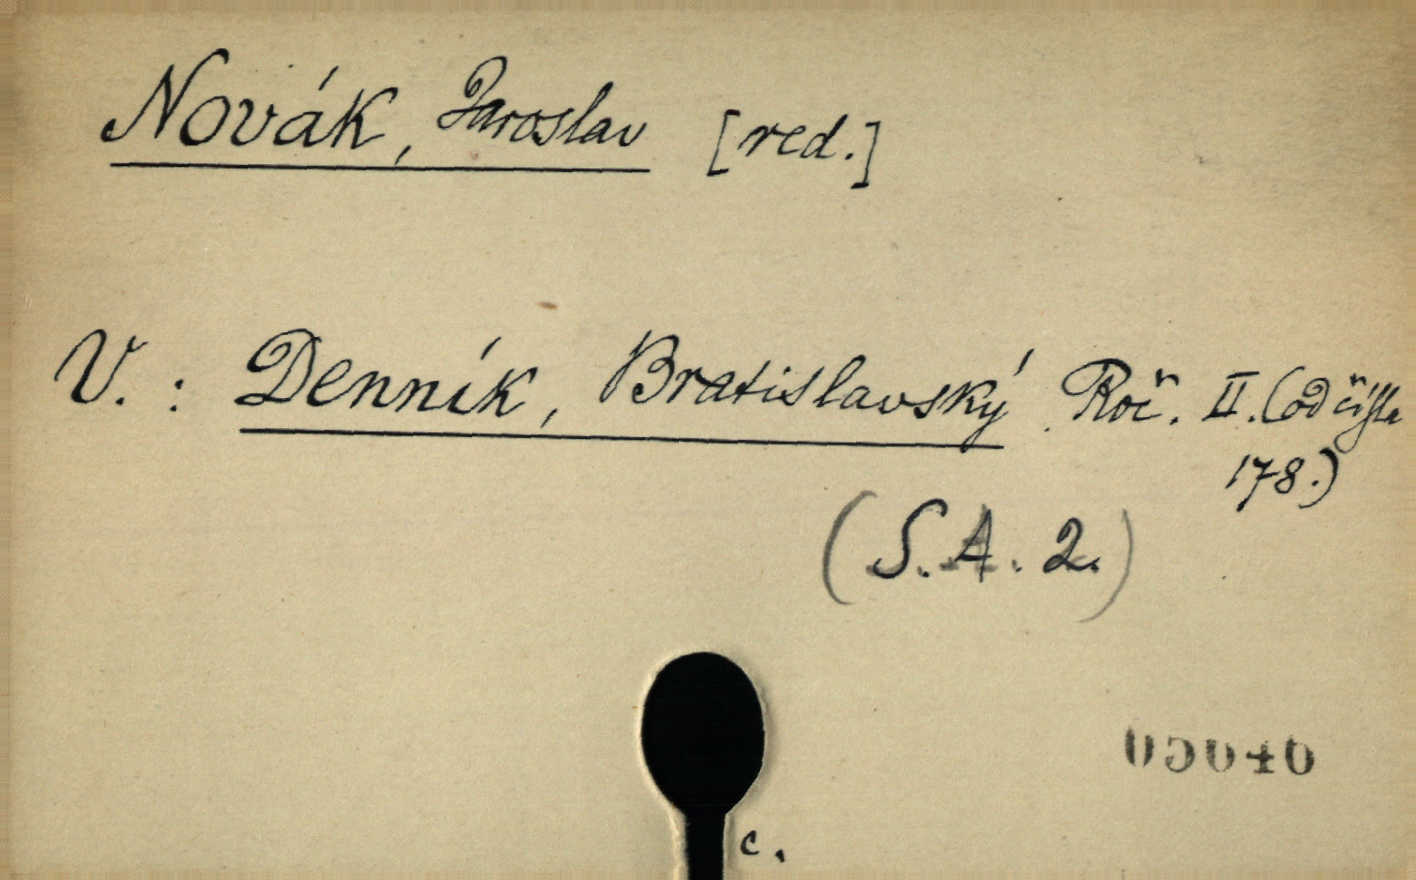 Novák, Jaroslav [red.]
V. : Denník, Bratislavský. Roč. II. (od čísla
178.)
(S. A. 2.)
c.